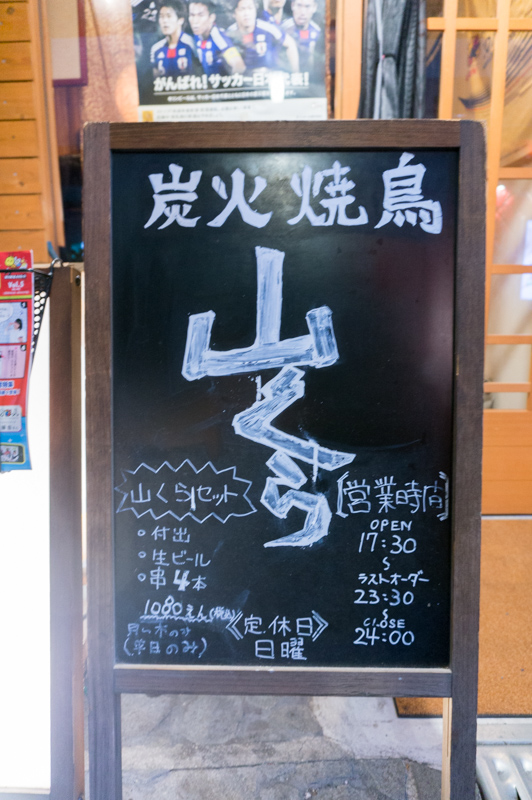 がんばれ!サッカー日本代表!
炭火焼鳥
山くら
山くらセット
○付出
○生ビール
○串4本
1080えん(税込)
(平日のみ)
《定休日》
日曜
[営業時間]
OPEN
17:30
〜
ラストオーダー
23:30
〜
CLOSE
24:00